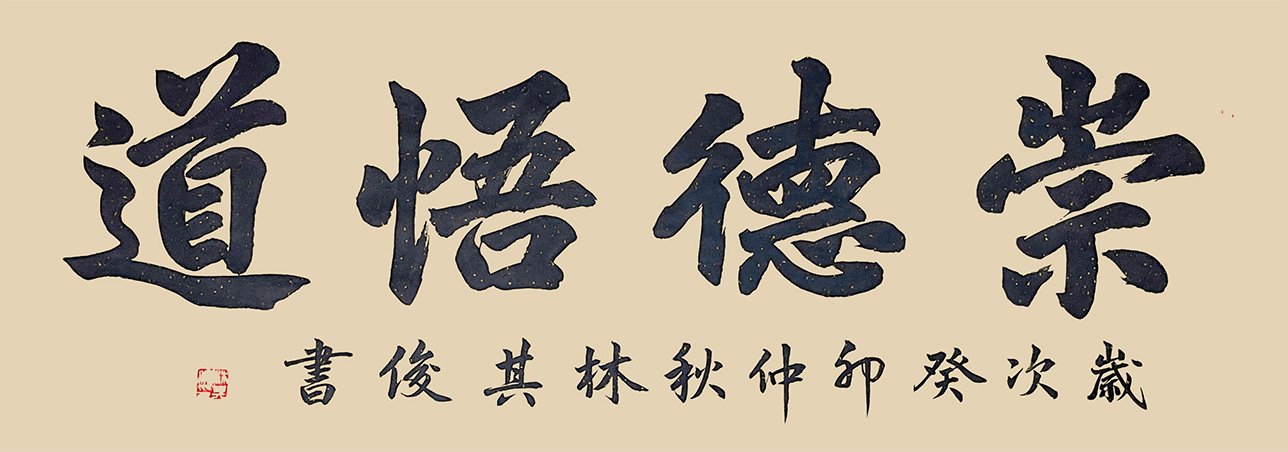 崇德悟道
歲次癸卯仲秋林其俊書